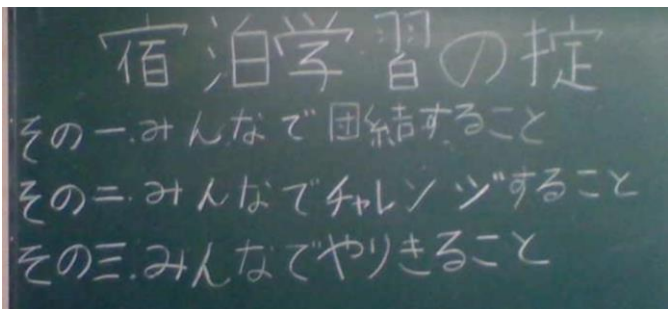 宿泊学習の掟
その一.みんなで団結すること
その二.みんなでチャレンジすること
その三.みんなでやりきること